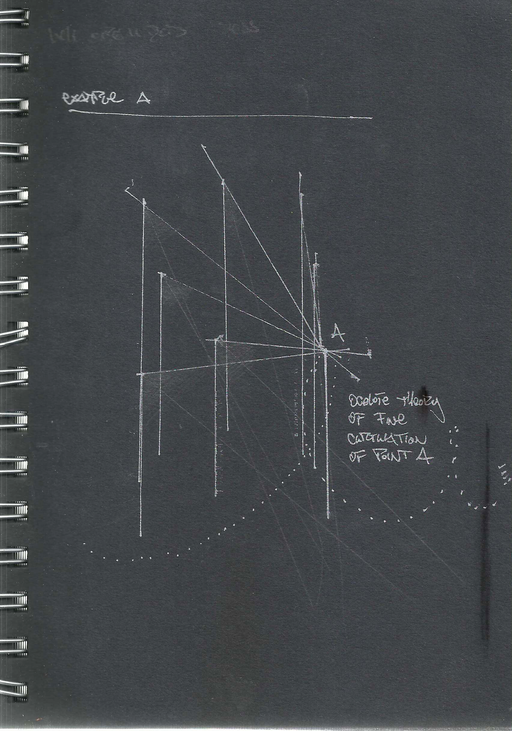 EXAMPLE A
A
EXPLORE THEORY
OF FINE
CULMINATION
OF POINT A